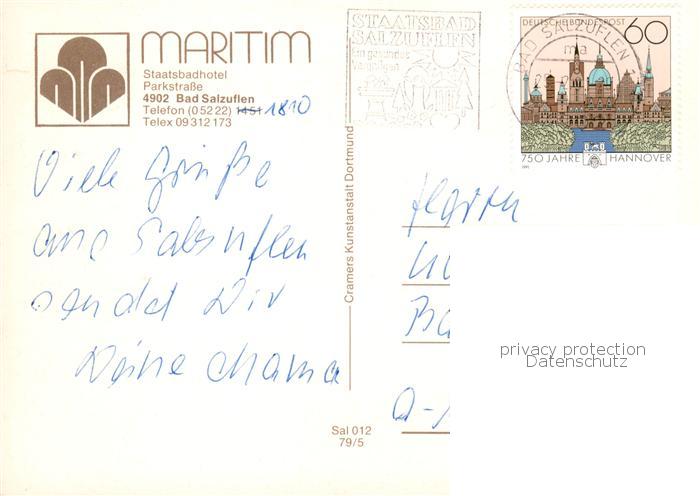 MARITIM
Staatsbadhotel
Parkstraße
4902 Bad Salzuflen
Telefon (0 52 22) 1451 1810
Telex 09 312 173
Viele Grüße
aus Salzuflen
sendet Dir
Deine Mama
Cramers Kunstanstalt Dortmund
Sal 012
79/5
STAATSBAD
SALZUFLEN
Ein gesundes
Vergnügen
BAD SALZUFLEN
DEUTSCHE BUNDESPOST 60
750 JAHRE HANNOVER
1991
Herrn
privacy protection
Datenschutz